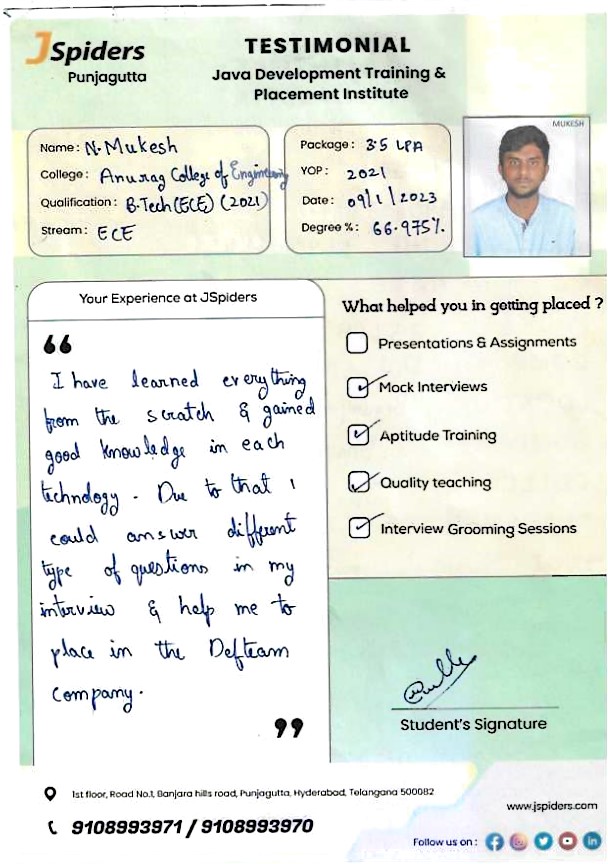 JSpiders
Punjagutta
TESTIMONIAL
Java Development Training &
Placement Institute
Name: N. Mukesh
College: Anurag College of Engineering
Qualification: B.Tech (ECE) (2021)
Stream: ECE
Package: 3.5 LPA
YOP: 2021
Date: 09/1/2023
Degree %: 66.975%.
MUKESH
Your Experience at JSpiders
“
I have learned everything
from the scratch & gained
good knowledge in each
technology. Due to that I
could answer different
type of questions in my
interview & help me to
place in the Defteam
company.
”
What helped you in getting placed ?
Presentations & Assignments
Mock Interviews
Aptitude Training
Quality teaching
Interview Grooming Sessions
Student's Signature
1st floor, Road No.1, Banjara hills road, Punjagutta, Hyderabad, Telangana 500082
9108993971 / 9108993970
www.jspiders.com
Follow us on :